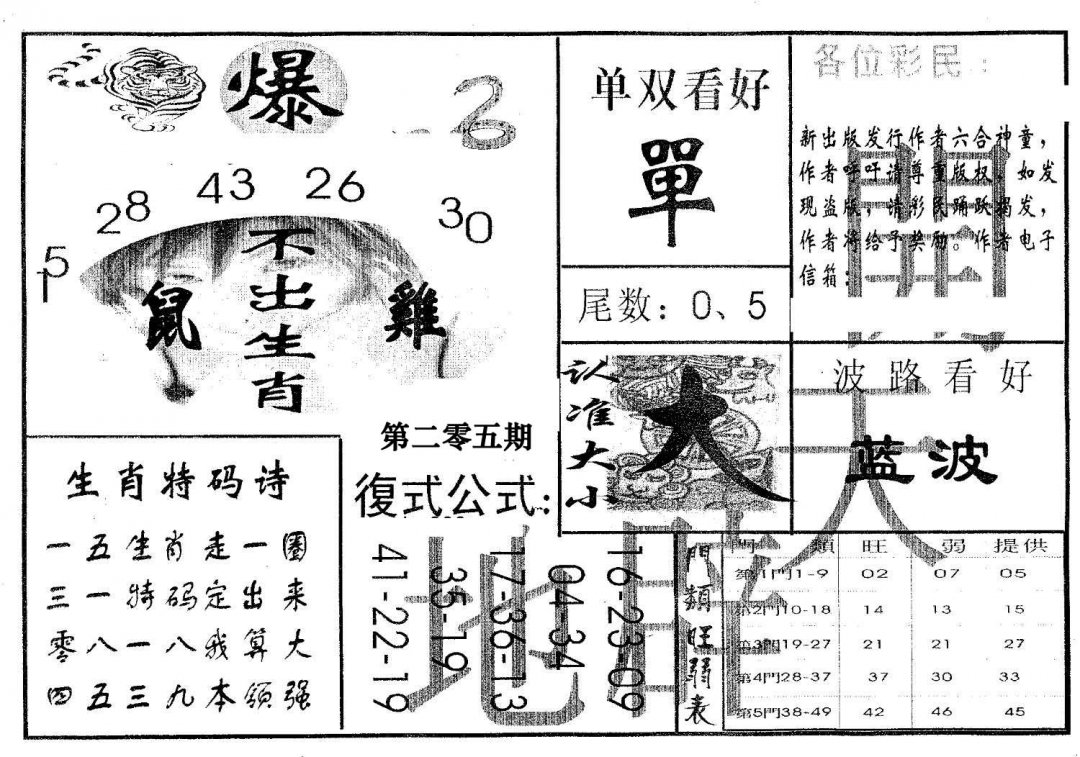 爆
26
15
28
43
26
30
不出生肖
鼠
雞
第二零五期
復式公式:
生肖特码诗
一五生肖走一圈
三一特码定出来
零八一八我算大
四五三九本领强
41-22-19
35-19
17-36-13
04-34
16-23-09
单双看好
單
尾数：0、5
认准大小
大
各位彩民：
新出版发行作者六合神童，
作者呼吁请尊重版权，如发
现盗版，请彩民踊跃揭发，
作者将给予奖励。作者电子
信箱：
波路看好
蓝波
門類旺弱表
門類 旺 弱 提供
第1門1-9 02 07 05
第2門10-18 14 13 15
第3門19-27 21 21 27
第4門28-37 37 30 33
第5門38-49 42 46 45